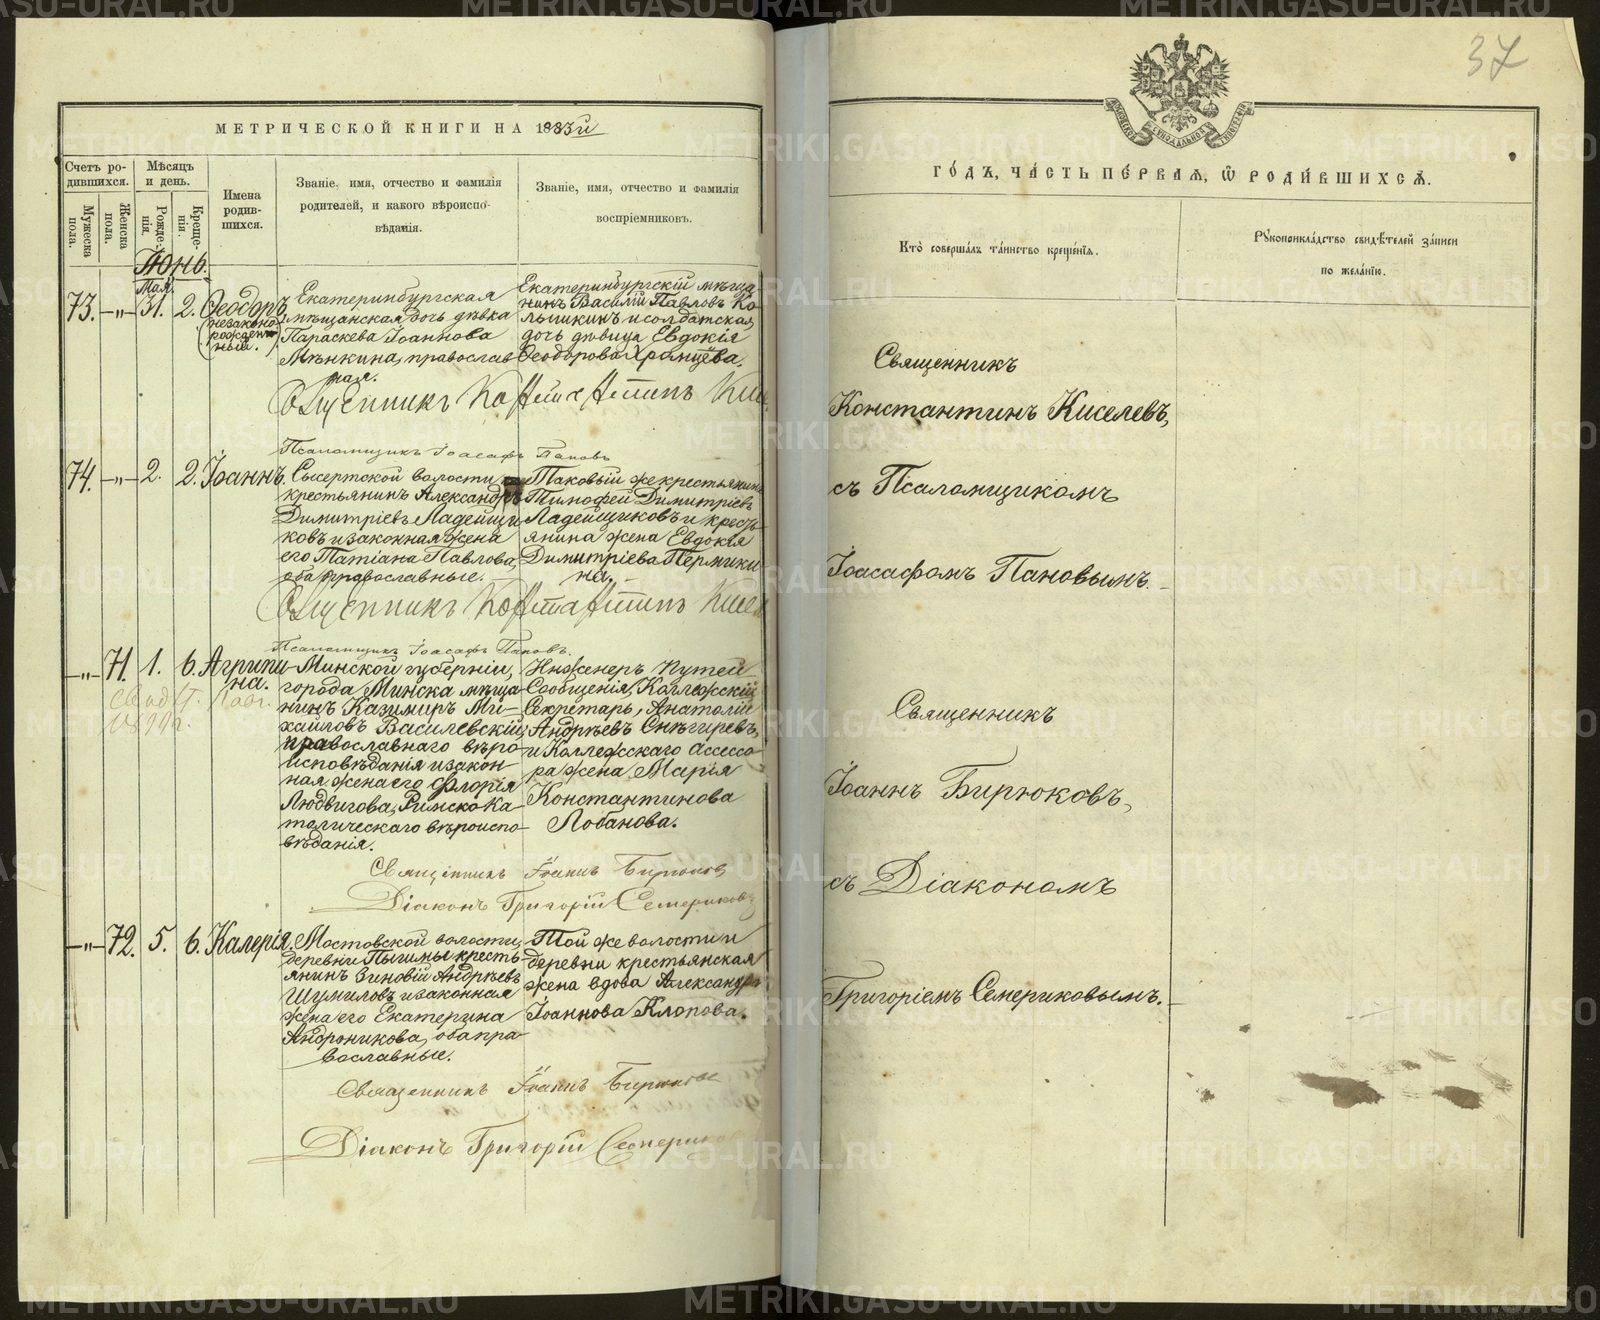 МЕТРИЧЕСКОЙ КНИГИ НА 1883й
Счетъ ро-
дившихся.
Мѣсяцъ
и день.
Имена
родив-
шихся.
Званіе, имя, отчество и фамилія
родителей, и какого вѣроиспо-
вѣданія.
Званіе, имя, отчество и фамилія
воспріемниковъ.
Мужеска
пола.
Женска
пола.
Рожде-
нія.
Креще-
нія.
Іюнь.
Мая
73. -„- 31. 2. Ѳеодоръ,
(незаконо-
рожден-
ный.)
Екатеринбургская
мѣщанская дочь дѣвка
Параскева Іоаннова
Мѣнкина, православ-
ная.
Екатеринбургскій мѣща-
нинъ Василій Павловъ Ко-
льчикинъ и солдатская
дочь дѣвица Евдокія
Ѳеодорова Храмцева.
Священникъ Константинъ Кис
Псаломщикъ Іоасафъ Пановъ
74. -„- 2. 2. Іоаннъ.
Сысертской волости
крестьянинъ Александръ
Димитріевъ Ладейщи-
ковъ и законная жена
его Татіана Павлова,
оба православные.
Таковый же крестьянинъ
Тимофей Димитріевъ
Ладейщиковъ и кресть-
янина жена Евдокія
Димитріева Пермики-
на.
Священникъ Константинъ Кисел
Псаломщикъ Іоасафъ Пановъ.
-„- 71. 1. 6. Агрипи-
на.
1899г.
Минской губерніи,
города Минска мѣща-
нинъ Казимиръ Ми-
хайловъ Василевскій,
православнаго вѣро-
исповѣданія и закон-
ная жена его Флорія
Людвигова, Римско-Ка-
толическаго вѣроиспо-
вѣданія.
Инженеръ Путей
Сообщенія, Коллежскій
Секретарь, Анатолій
Андреевъ Снѣгиревъ,
и Коллежскаго Ассессо-
ра жена Марія
Константинова
Лобанова.
Священникъ Іоаннъ Бирюковъ
Діаконъ Григорій Семериковъ
-„- 72. 5. 6. Калерія.
Мостовской волости,
деревни Пышмы кресть-
янинъ Зиновій Андреевъ
Шумиловъ и законная
жена его Екатерина
Андроникова, оба пра-
вославные.
Той же волости и
деревни крестьянская
жена вдова Александра
Іоаннова Клопова.
Священникъ Іоаннъ Бирюковъ
Діаконъ Григорій Семериковъ
37
ГО́ДЪ, ЧА́СТЬ ПЕ́РВАЯ, Ѿ РОДИ́ВШИХСЯ.
Кто̀ соверша́лъ та́инство креще́нїя.
Рꙋкоприкла́дство свидѣ́телей за́писи
по жела́нїю.
Священникъ
Константинъ Киселевъ,
съ Псаломщикомъ
Іоасафомъ Пановымъ.
Священникъ
Іоаннъ Бирюковъ,
съ Діакономъ
Григоріемъ Семериковымъ.
METRIKI.GASO-URAL.RU